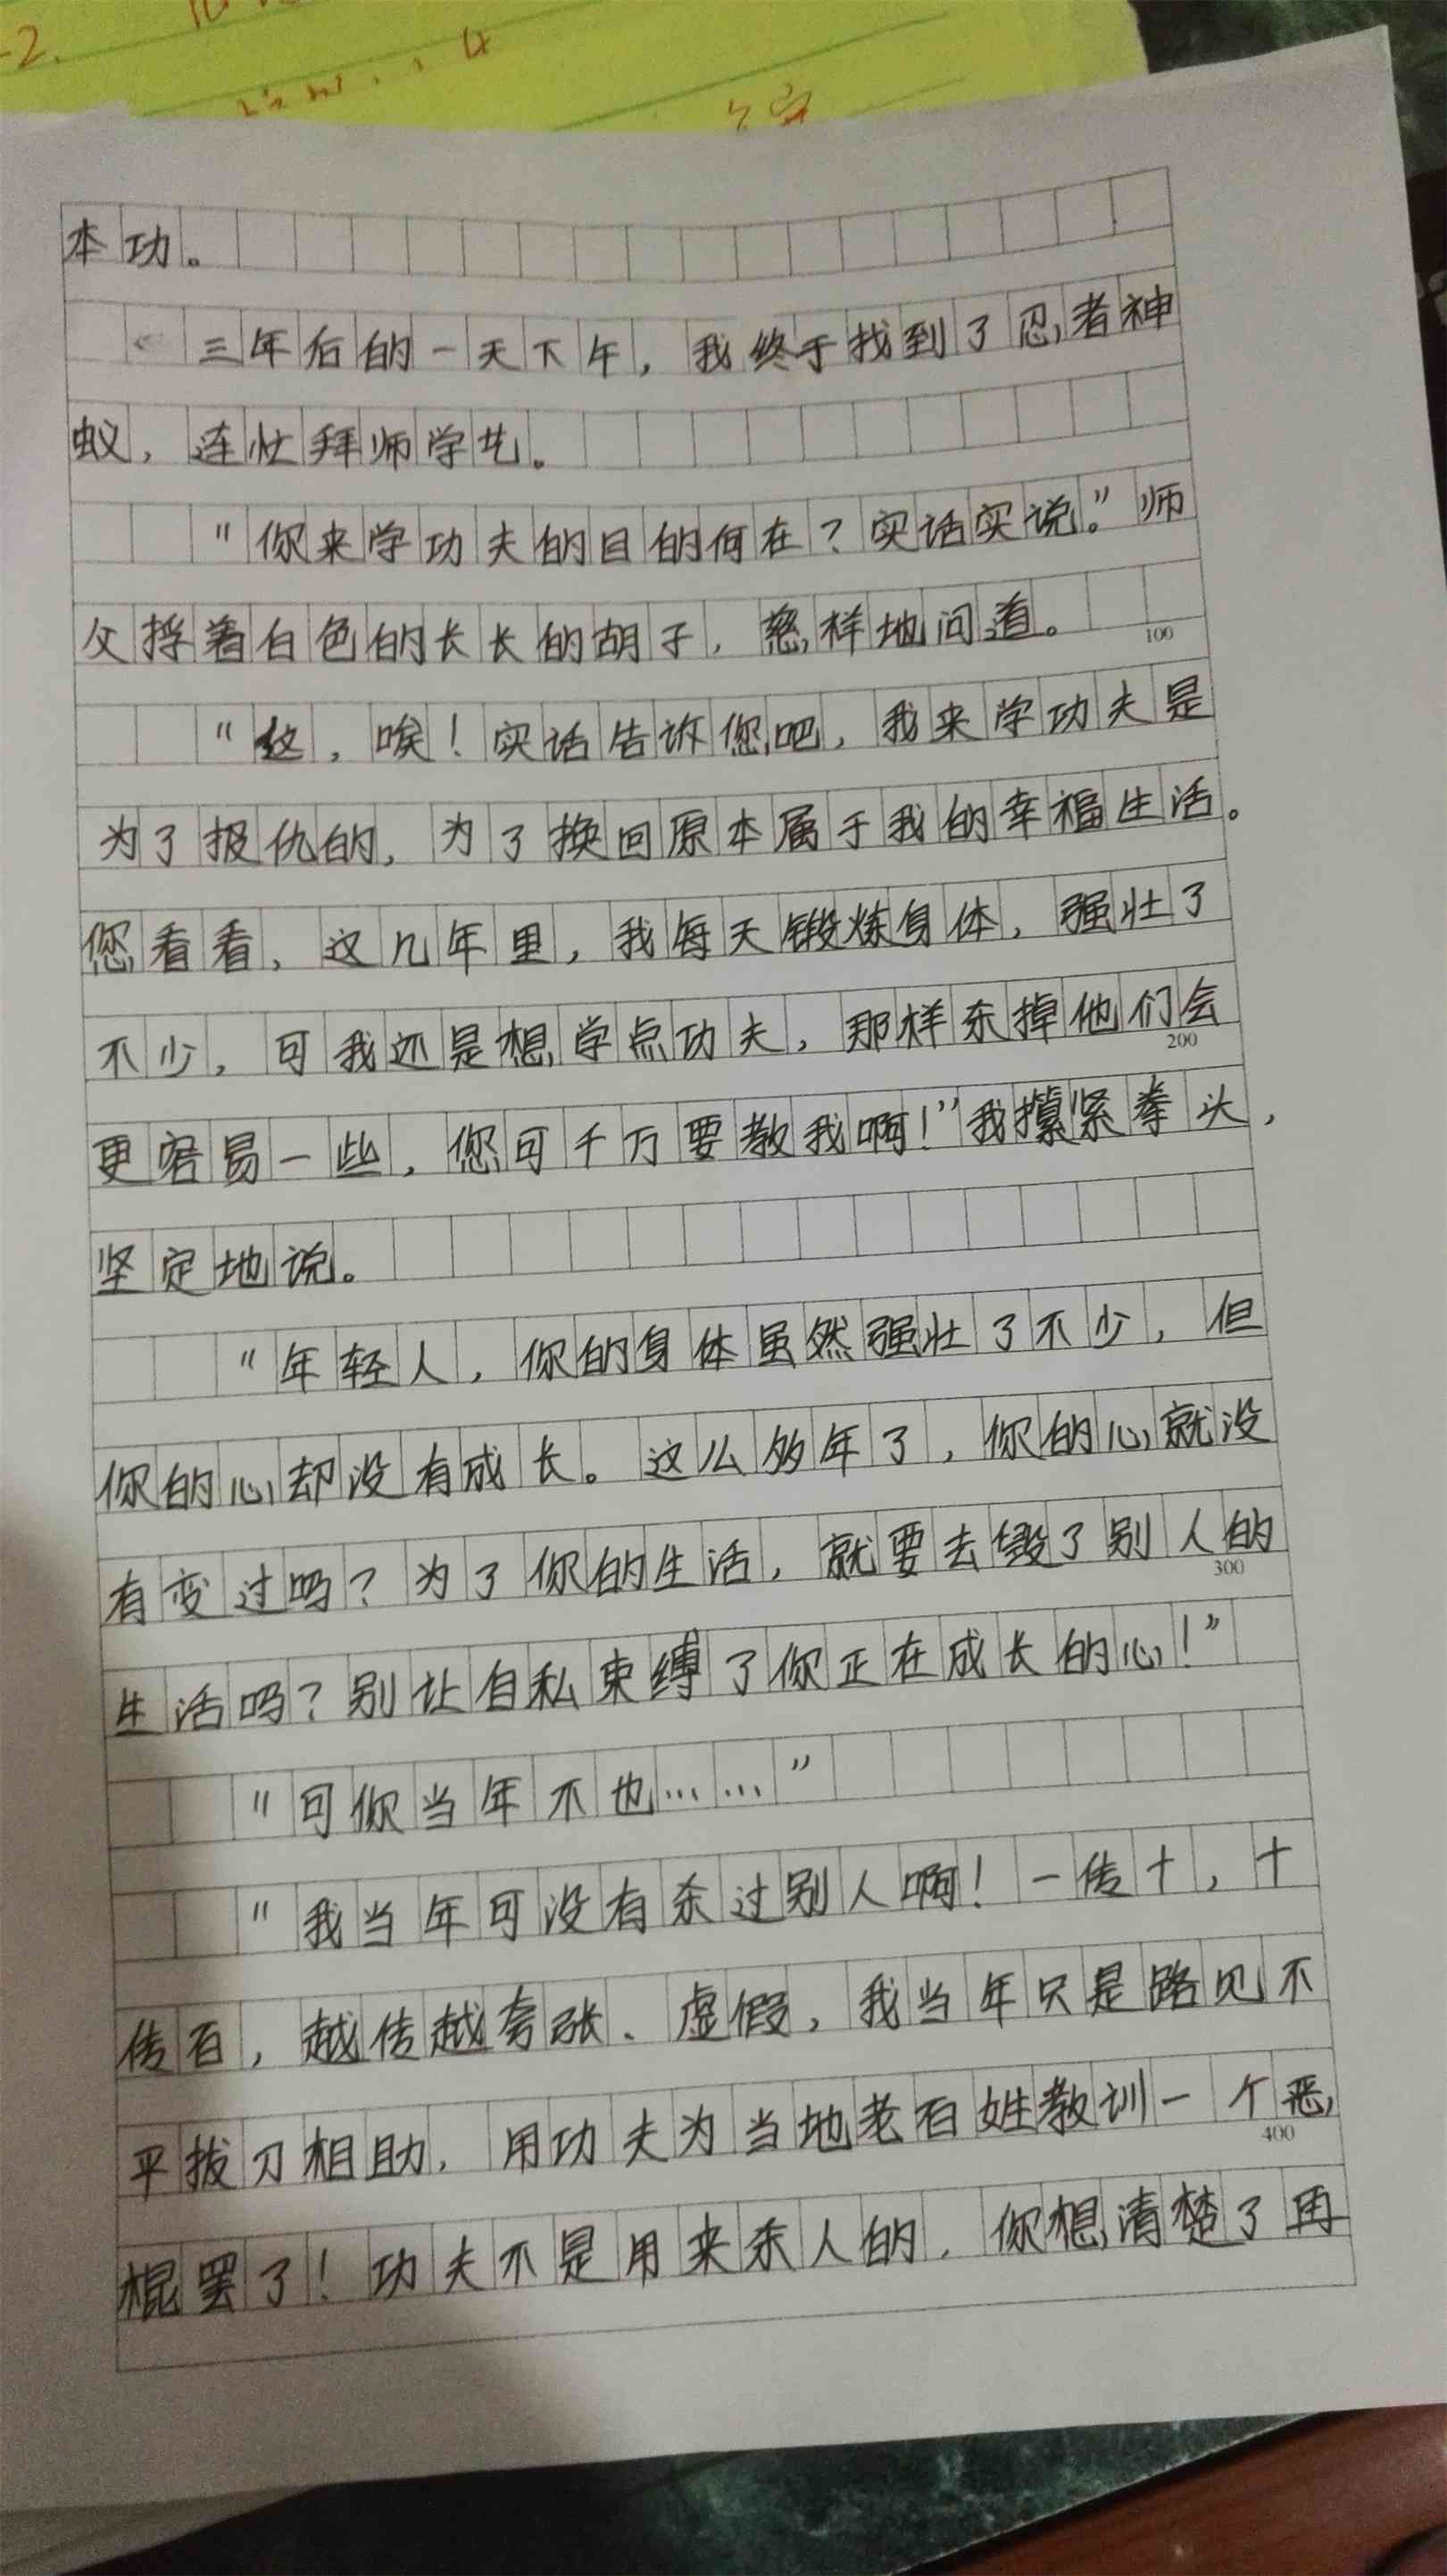 本功。
三年后的一天下午，我终于找到了忍者神
蚁，连忙拜师学艺。
“你来学功夫的目的何在？实话实说。”师
父捋着白色的长长的胡子，慈样地问道。
100
“这，唉！实话告诉您吧，我来学功夫是
为了报仇的，为了换回原本属于我的幸福生活。
您看看，这几年里，我每天锻炼身体，强壮了
不少，可我还是想学点功夫，那样杀掉他们会
200
更容易一些，您可千万要教我啊！”我攥紧拳头，
坚定地说。
“年轻人，你的身体虽然强壮了不少，但
你的心却没有成长。这么多年了，你的心就没
有变过吗？为了你的生活，就要去毁了别人的
300
生活吗？别让自私束缚了你正在成长的心！”
“可你当年不也……”
“我当年可没有杀过别人啊！一传十，十
传百，越传越夸张、虚假，我当年只是路见不
平拔刀相助，用功夫为当地老百姓教训一个恶
400
棍罢了！功夫不是用来杀人的，你想清楚了再